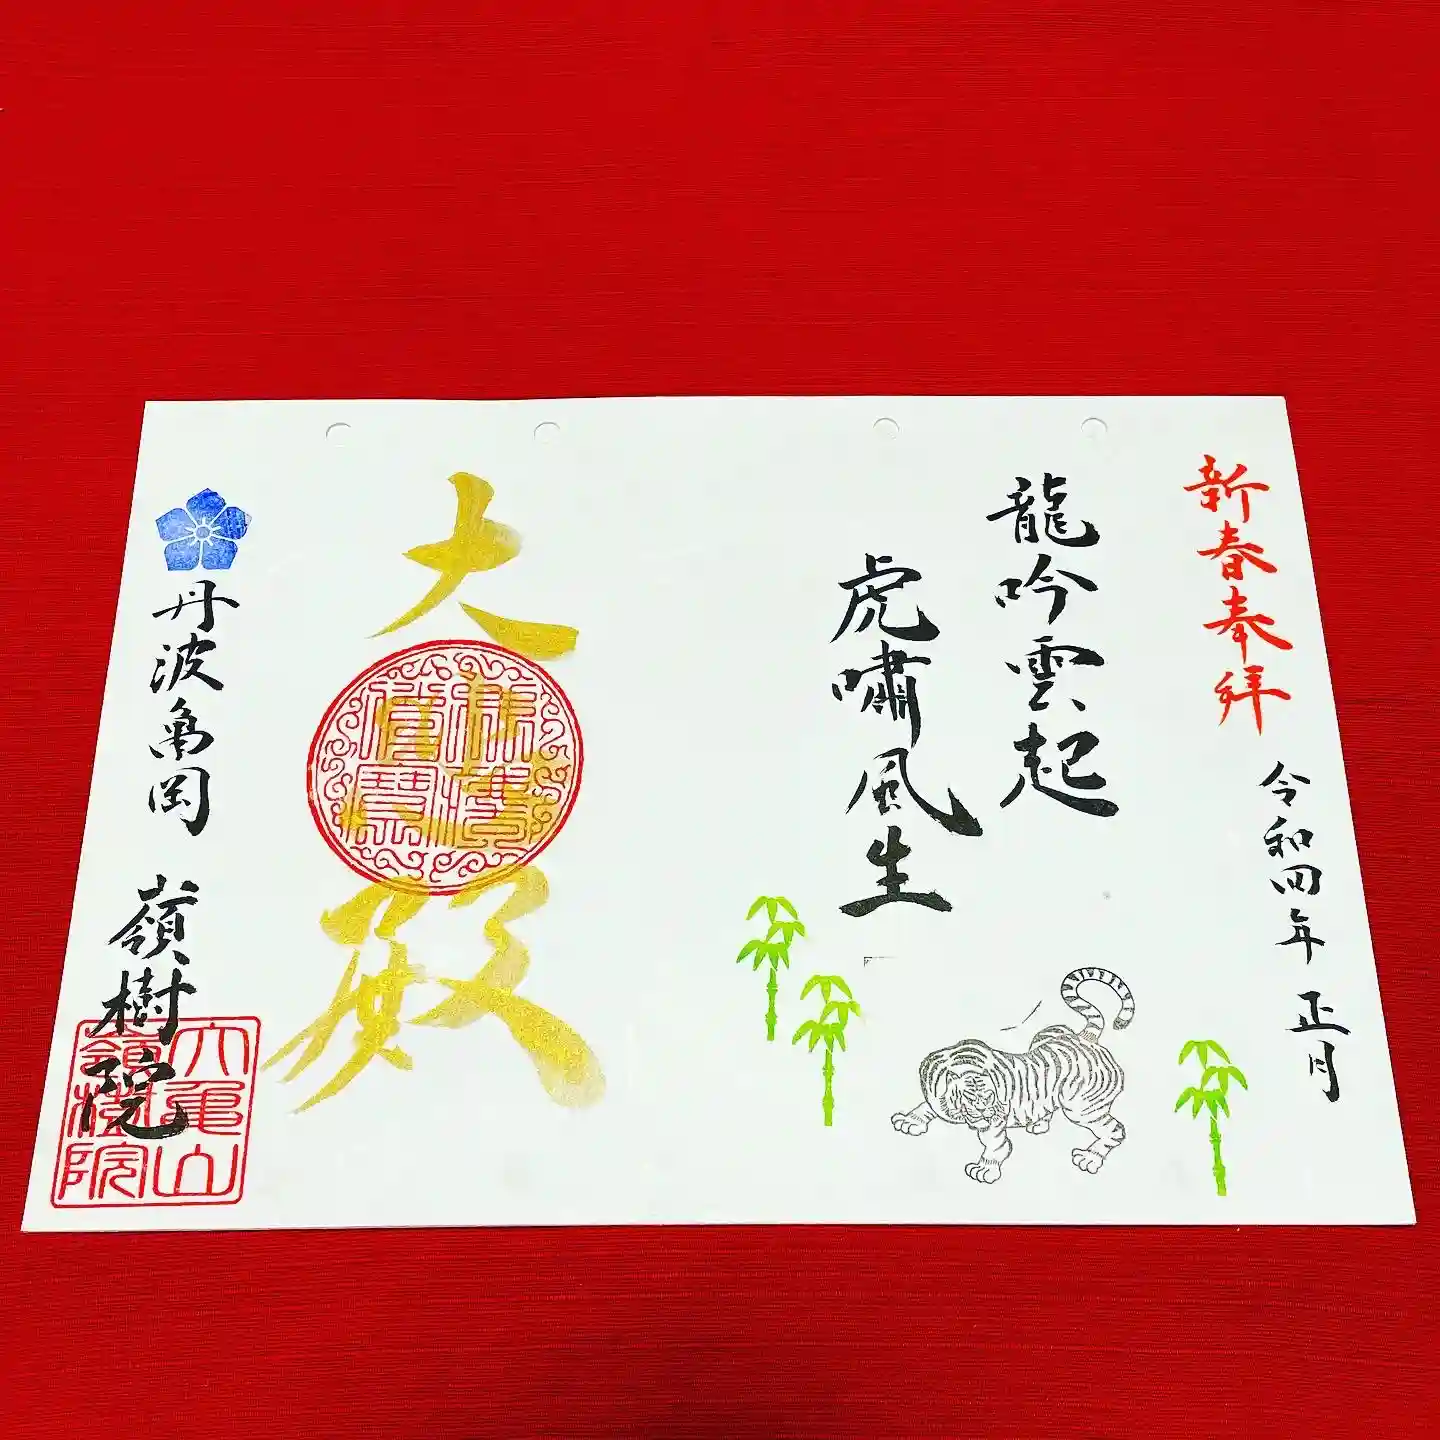 新春奉拝
令和四年 正月
龍吟雲起
虎嘯風生
大悲殿
丹波亀岡 嶺樹院
大亀山
嶺樹院